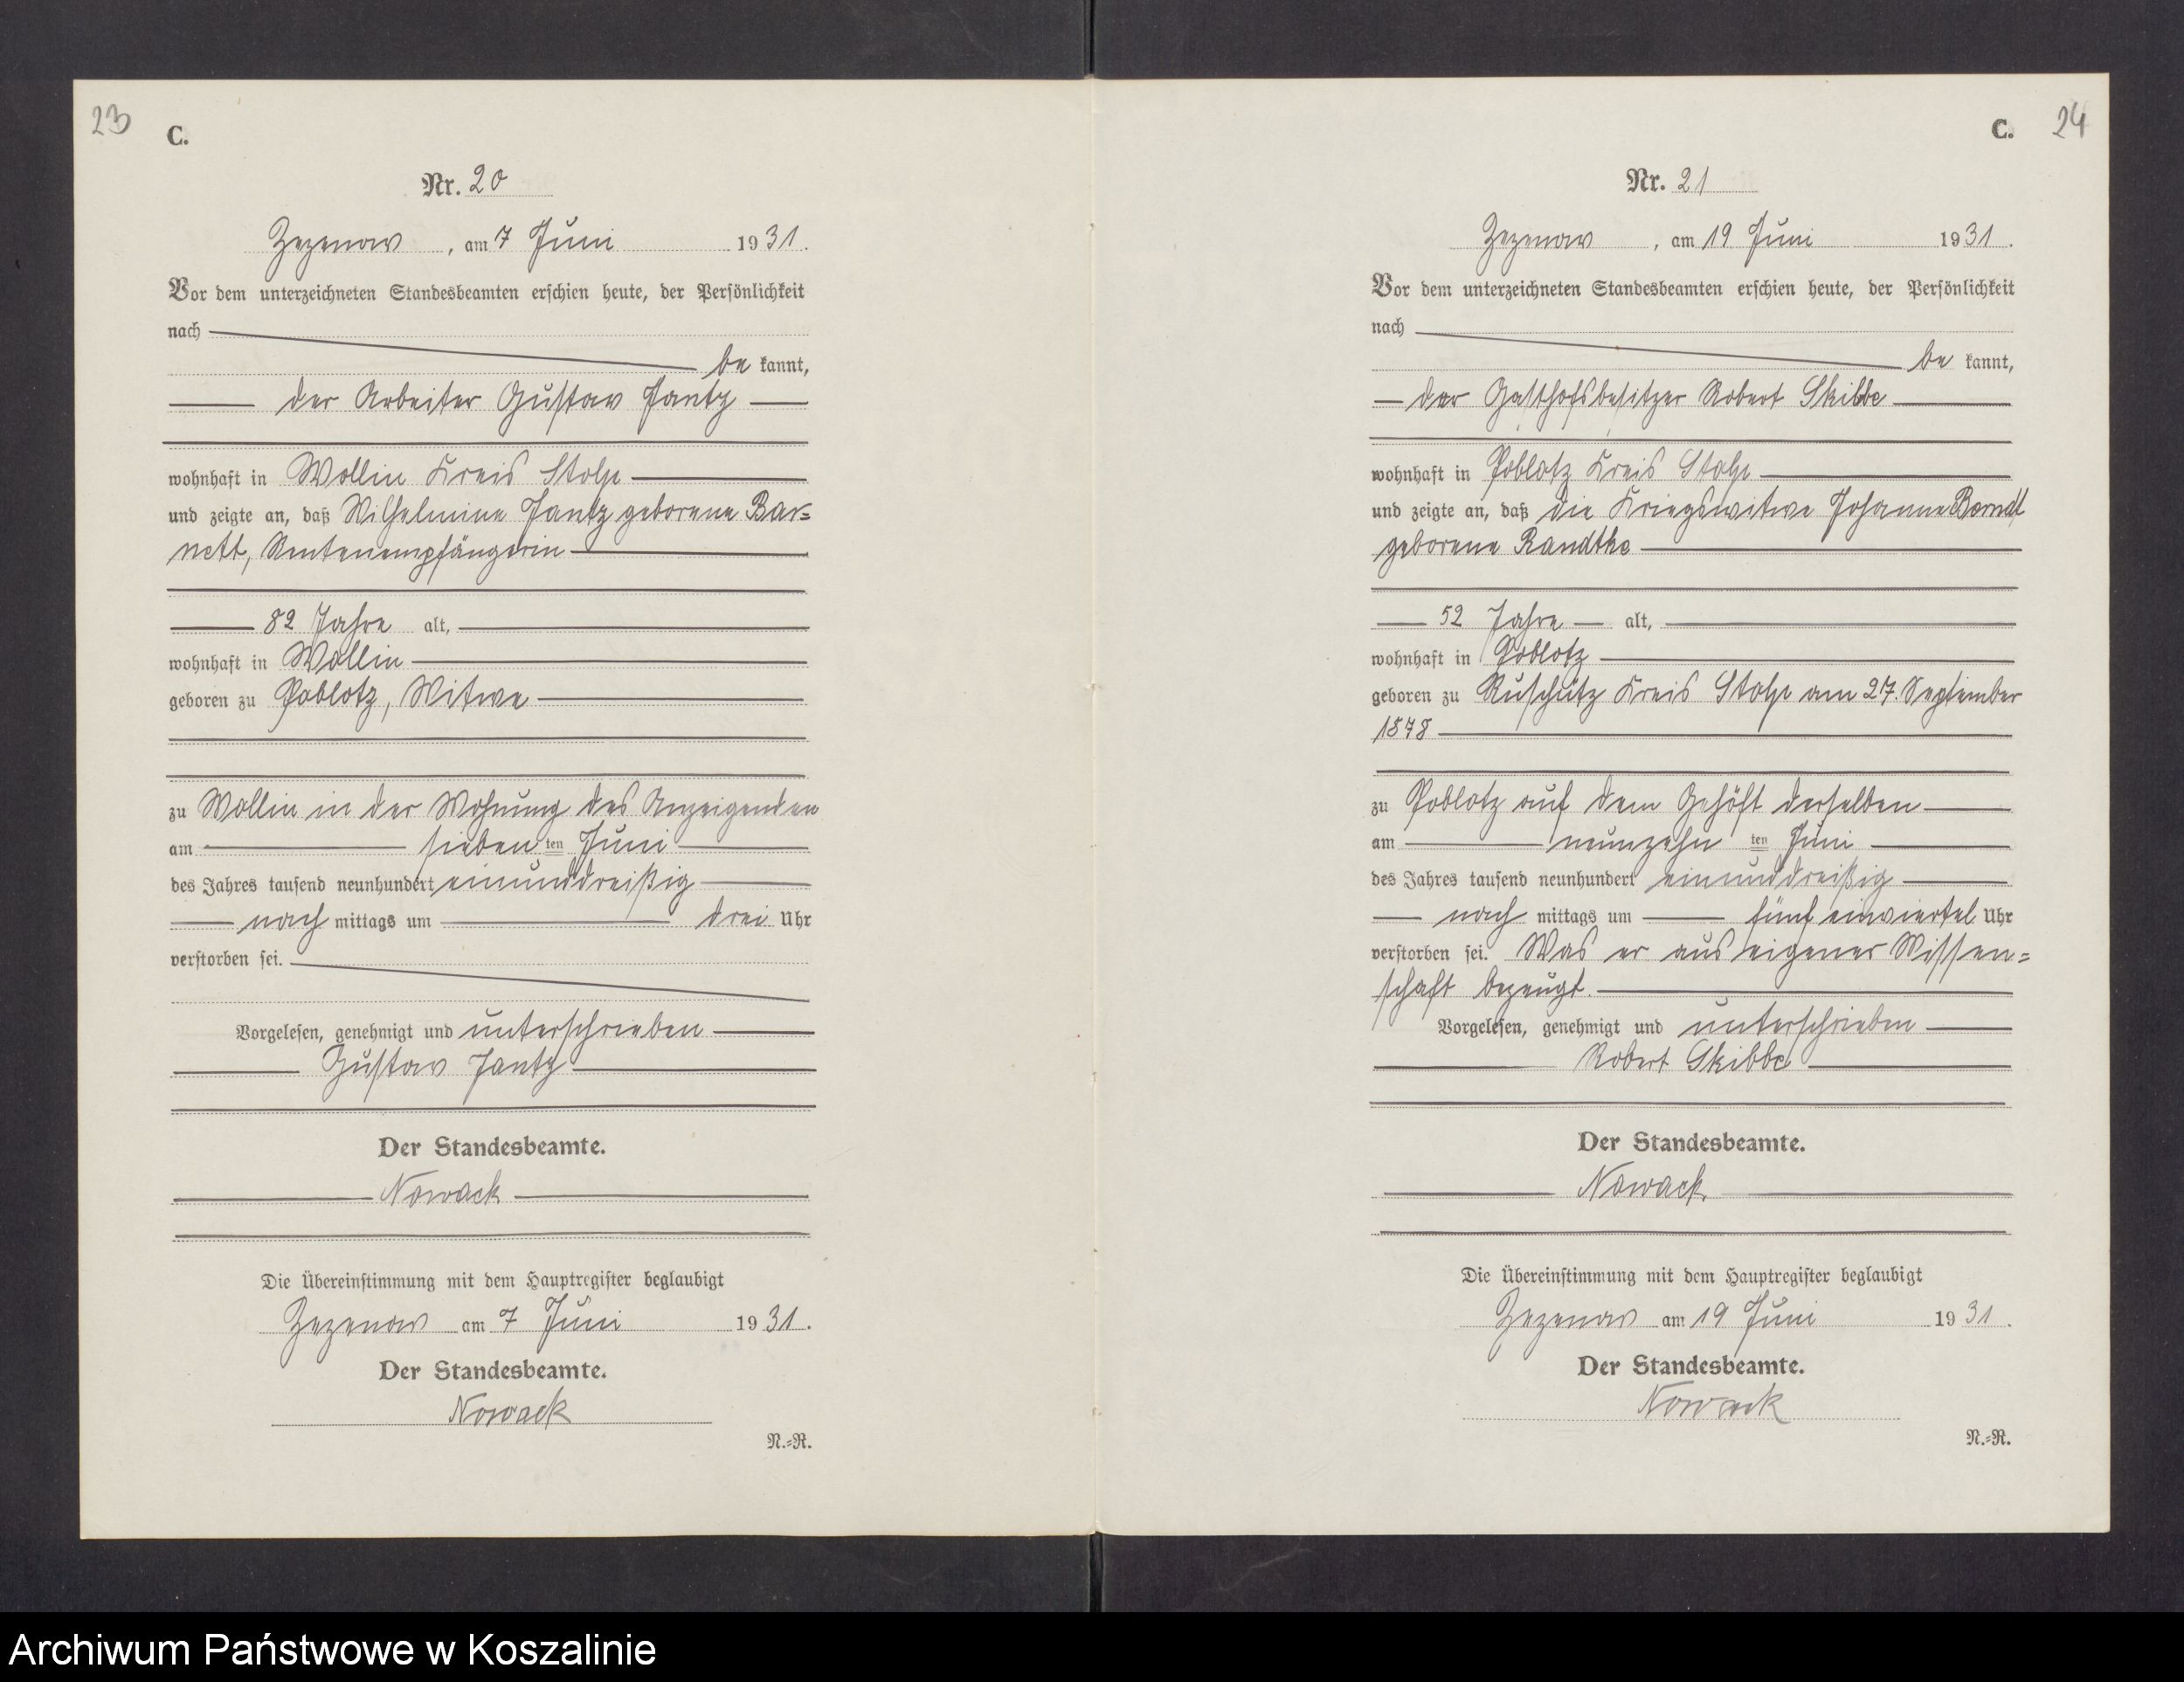 23
C.
Nr. 20
Zezenow, am 7 Juni 1931.
Vor dem unterzeichneten Standesbeamten erschien heute, der Persönlichkeit
nach
be kannt,
der Arbeiter Gustav Jantz
wohnhaft in Wollin Kreis Stolp
und zeigte an, daß Wilhelmine Jantz geborene Bar=
nett, Rentenempfängerin
82 Jahre alt,
wohnhaft in Wollin
geboren zu Poblotz, Witwe
zu Wollin in der Wohnung des Anzeigenden
am sieben ten Juni
des Jahres tausend neunhundert einunddreißig
nach mittags um drei Uhr
verstorben sei.
Vorgelesen, genehmigt und unterschrieben
Gustav Jantz
Der Standesbeamte.
Nowack
Die Übereinstimmung mit dem Hauptregister beglaubigt
Zezenow am 7 Juni 1931.
Der Standesbeamte.
Nowack
N.=R.
C. 24
Nr. 21
Zezenow, am 19 Juni 1931.
Vor dem unterzeichneten Standesbeamten erschien heute, der Persönlichkeit
nach
be kannt,
der Gasthofsbesitzer Robert Skibbe
wohnhaft in Poblotz Kreis Stolp
und zeigte an, daß die Kriegswitwe Johanne Berndt
geborene Randthe
52 Jahre alt,
wohnhaft in Poblotz
geboren zu Ruschütz Kreis Stolp am 27. September
1878
zu Poblotz auf dem Gehöft derselben
am neunzehn ten Juni
des Jahres tausend neunhundert einunddreißig
nach mittags um fünf einviertel Uhr
verstorben sei. Was er aus eigener Wissen=
schaft bezeugt.
Vorgelesen, genehmigt und unterschrieben
Robert Skibbe
Der Standesbeamte.
Nowack.
Die Übereinstimmung mit dem Hauptregister beglaubigt
Zezenow am 19 Juni 1931.
Der Standesbeamte.
Nowack
N.=R.
Archiwum Państwowe w Koszalinie